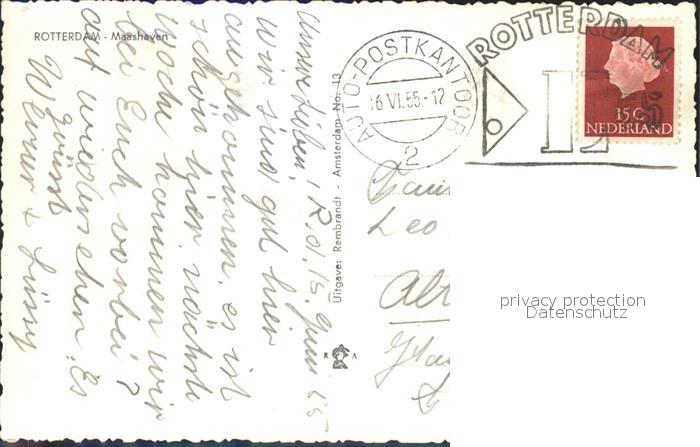 ROTTERDAM - Maashaven
Unsre Lieben, R.d. 15. Juni 55
Wir sind gut hier
angekommen, es ist
schön hier, nächste
Woche kommen wir
bei Euch vorbei?
auf wiedersehen. Es
grüsst
Werner &
Uitgave: Rembrandt - Amsterdam No. 13
R A
AUTO-POSTKANTOOR
16 VI.55.-12
2
ROTTERDAM
E
55
15 C
NEDERLAND
Leo
privacy protection
Datenschutz